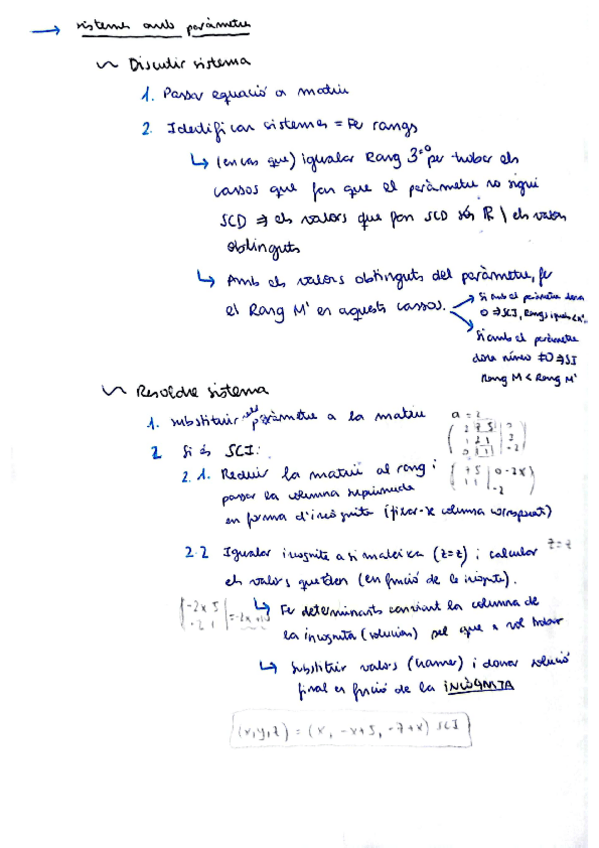 → sistemes amb paràmetre
Discutir sistema
1. Passar equació a matriu
2. Identificar sistemes = Fer rangs
↳ (en cas que) igualar Rang 3=0 per trobar els
cassos que fan que el paràmetre no sigui
SCD ⇒ els valors que fan SCD són ℝ \ els valors
obtinguts
↳ Amb els valors obtinguts del paràmetre, fer
el Rang M' en aquests cassos.
Si amb el paràmetre dona
0 ⇒ SCI, Rangs iguals < n°.
Si amb el paràmetre
dona número ≠0 ⇒ SI
Rang M < Rang M'
Resoldre sistema
1. substituir el paràmetre a la matriu
a = 2
2 Si és SCI:
2.1. Reduir la matriu al rang i
passar la columna suprimida
en forma d'incògnita (fixar-se columna corresponent)
1 1 | -2
2.2 Igualar incògnita a si mateixa (z=z) i calcular
z = z
els valors que queden (en funció de la incògnita).
|-2x 5
-2 1|
↳ Fer determinants canviant la columna de
la incògnita (solucions) pel que es vol trobar
↳ Substituir valors (Cramer) i donar solució
final en funció de la INCÒGNITA
(x,y,z) = (x, -x+5, -7+x) SCI